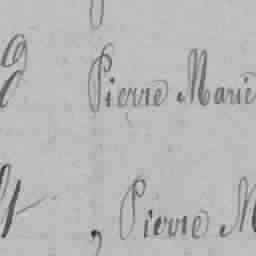 Pierre Marie
, Pierre M